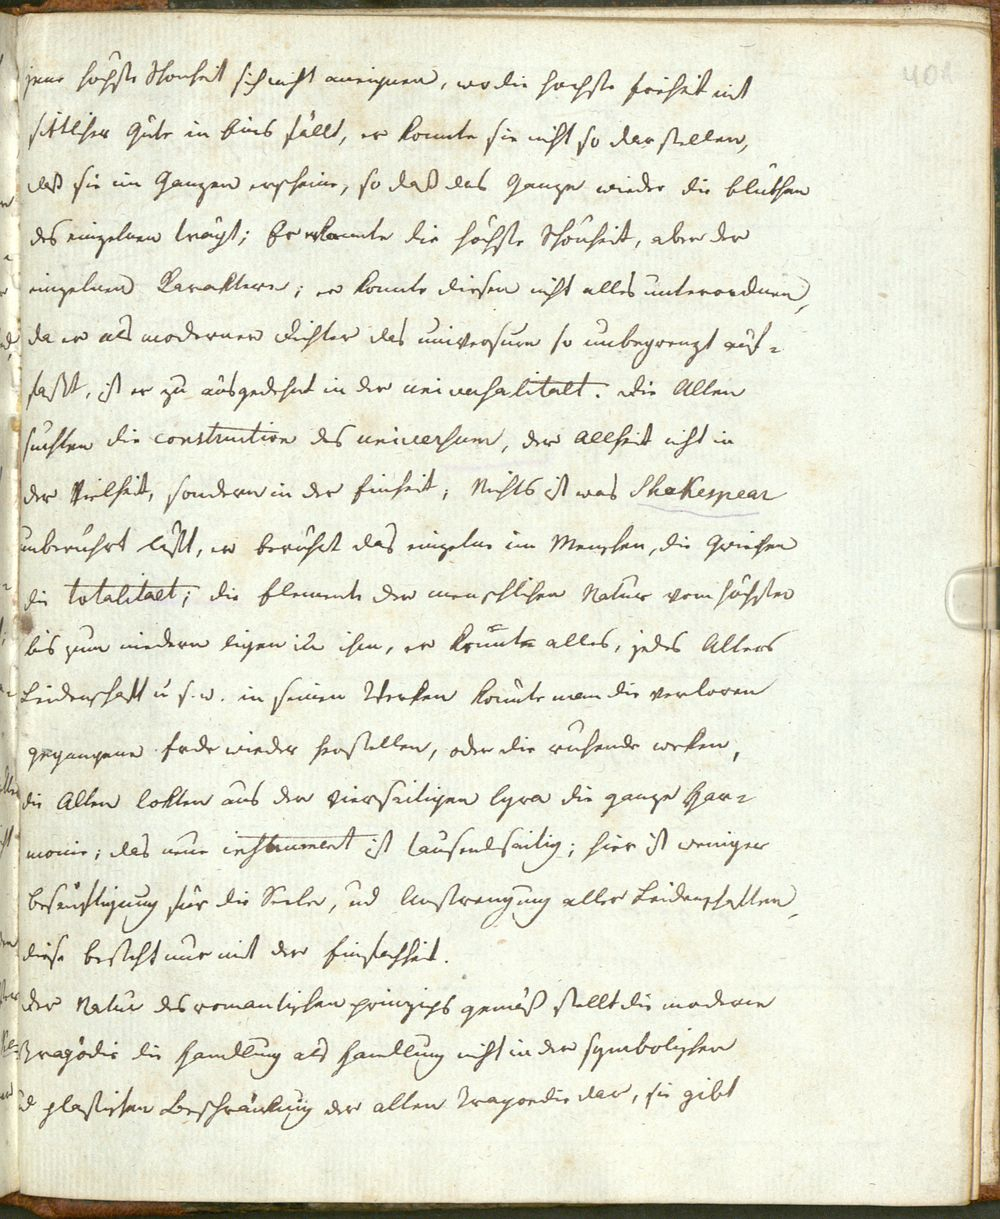 jene höchste Schönheit sich nicht aneignen, wo die höchste Freiheit mit
sittlicher Güte in Eins fällt, er konnte sie nicht so darstellen,
daß sie im Ganzen erscheine, so daß das Ganze wieder die Blüthen
des einzelnen trägt; Er kannte die höchste Schönheit, aber der
einzelnen Karaktere; er konnte diesen nicht alles unterordnen,
da er als moderner Dichter das universum so unbegrenzt auf-
faßt, ist er zu ausgedehnt in der universalitaet. Die Alten
suchten die construction des universum, der Allheit nicht in
der Vielheit, sondern in der Einheit; Nichts ist was Shakespear
unberührt läßt, er berührt das einzelne im Menschen, die Griechen
die totalitaet; die Elemente der menschlichen Natur vom höchsten
bis zum niedern liegen in ihm, er kennt alles, jedes Alters
Leidenschaft u s. w. in seinen Werken könnte man die verloren
gegangene Erde wieder herstellen, oder die ruhende weken,
die Alten lokten aus der vierseitigen lyra die ganze Har-
monie; das neue instrument ist tausendseitig; hier ist weniger
Besänftigung für die Seele, ud Anstrengung aller Leidenschaften,
diese besteht nur mit der Einfachheit.
Der Natur des romantischen prinzips gemäß stellt die moderne
Tragödie die Handlung als Handlung nicht in der symbolischen
ud plastischen Beschränkung der alten Tragoedie dar, sie gibt